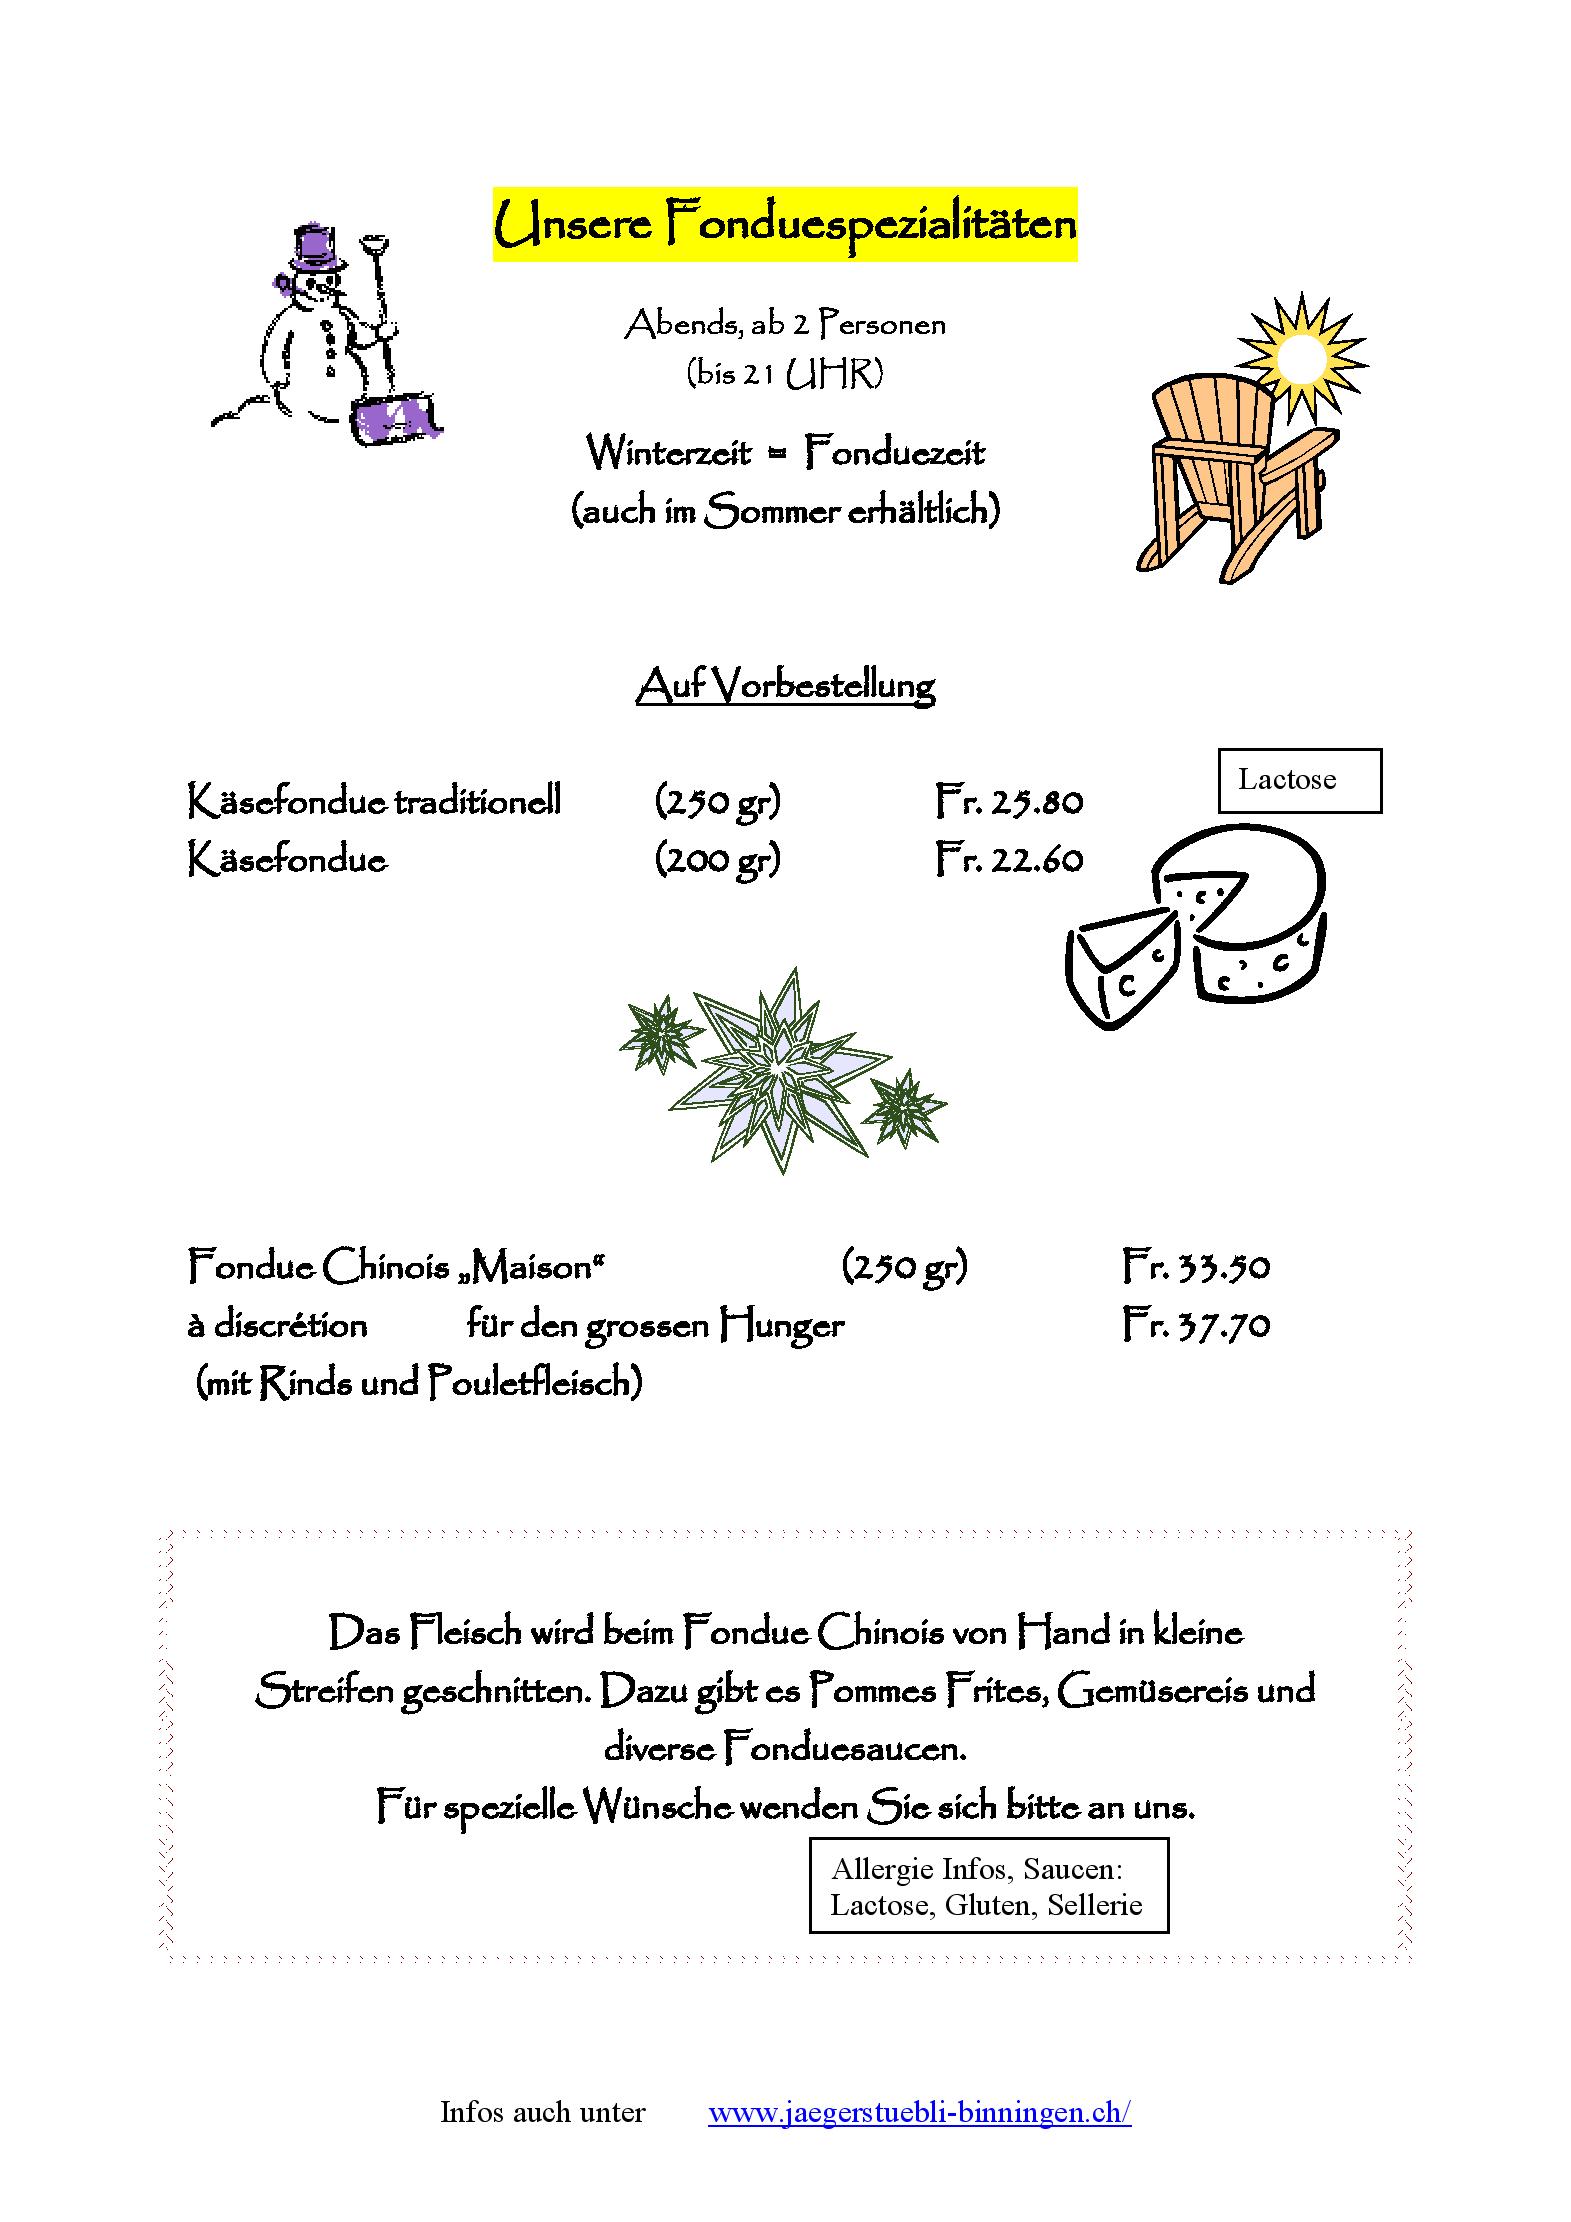 Unsere Fonduespezialitäten
Abends, ab 2 Personen
(bis 21 UHR)
Winterzeit = Fonduezeit
(auch im Sommer erhältlich)
Auf Vorbestellung
Lactose
Käsefondue traditionell (250 gr) Fr. 25.80
Käsefondue (200 gr) Fr. 22.60
Fondue Chinois „Maison“ (250 gr) Fr. 33.50
à discrétion für den grossen Hunger Fr. 37.70
(mit Rinds und Pouletfleisch)
Das Fleisch wird beim Fondue Chinois von Hand in kleine
Streifen geschnitten. Dazu gibt es Pommes Frites, Gemüsereis und
diverse Fonduesaucen.
Für spezielle Wünsche wenden Sie sich bitte an uns.
Allergie Infos, Saucen:
Lactose, Gluten, Sellerie
Infos auch unter www.jaegerstuebli-binningen.ch/